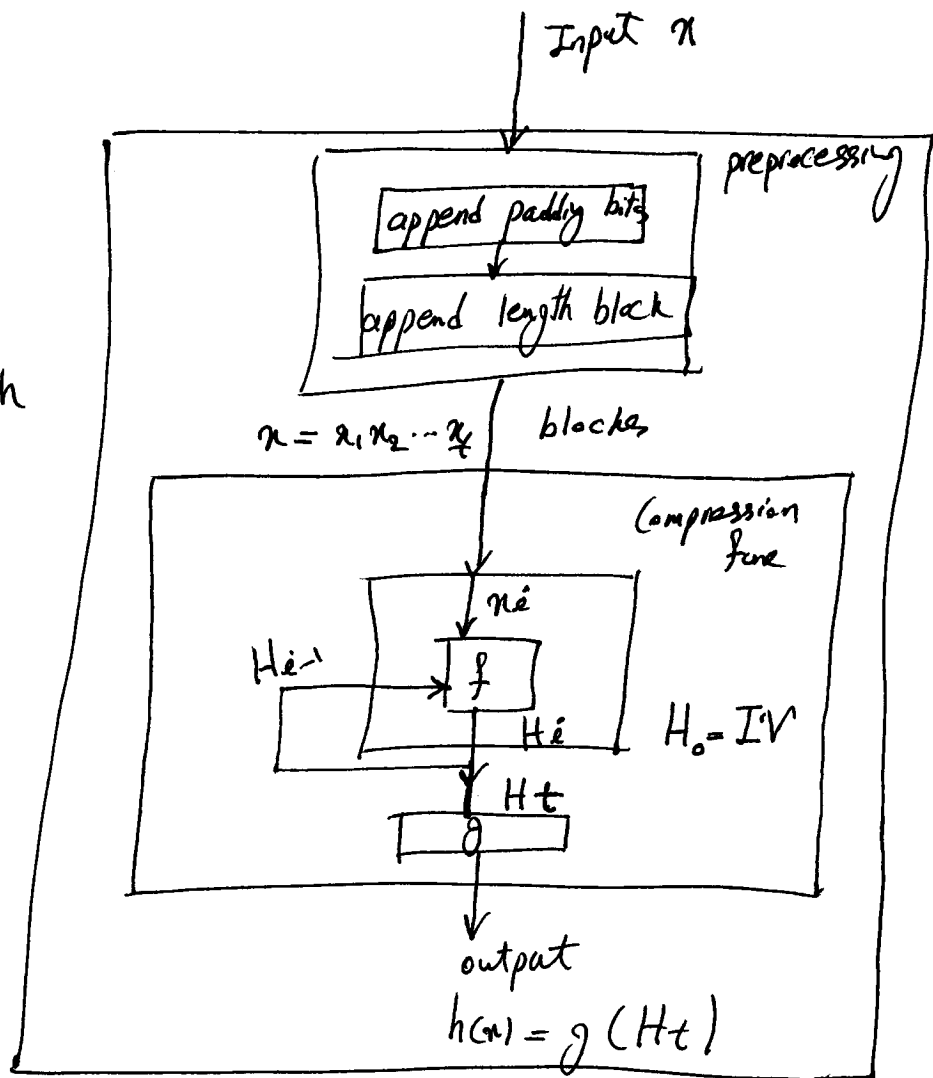 Input x
preprocessing
append padding bits
append length block
h
x = x₁ x₂ ... x_t blocks
Compression
func
xi
Hi-1
f
Hi
H₀ = IV
Ht
g
output
h(x) = g (Ht)